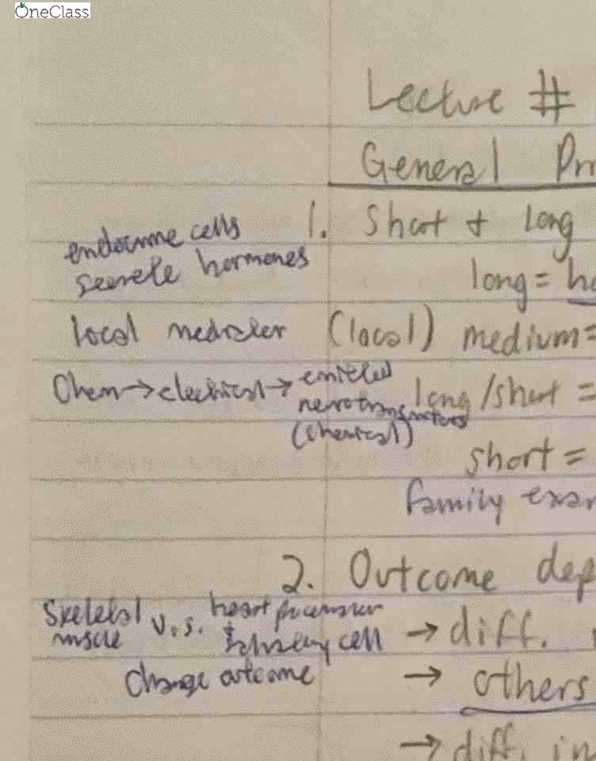 OneClass
Lecture #
General Pri
1. Short + Long
endocrine cells
secrete hormones
long = ho
local mediator (local) medium =
Chem → electrical → emitted
neurotransmitters
(chemical)
long/short =
short =
family exam
2. Outcome dep
skeletal muscle v.s. heart pacemaker
cell → diff.
change outcome → others
→ diff. in